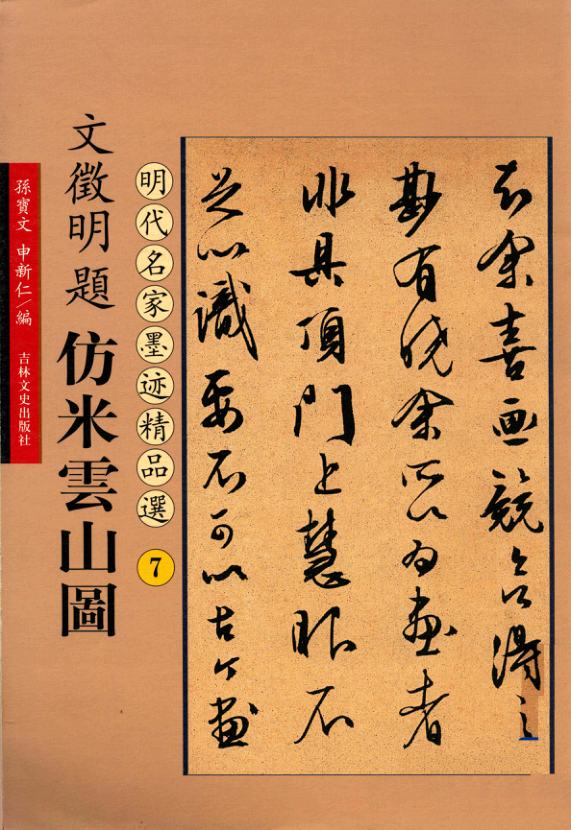 知余喜画競欲得之
尠有曉余所以為畫者
非具頂門上慧眼不
足以識要不可以古今畫
明代名家墨迹精品選
7
文徵明題仿米雲山圖
孫寶文 申新仁/編
吉林文史出版社